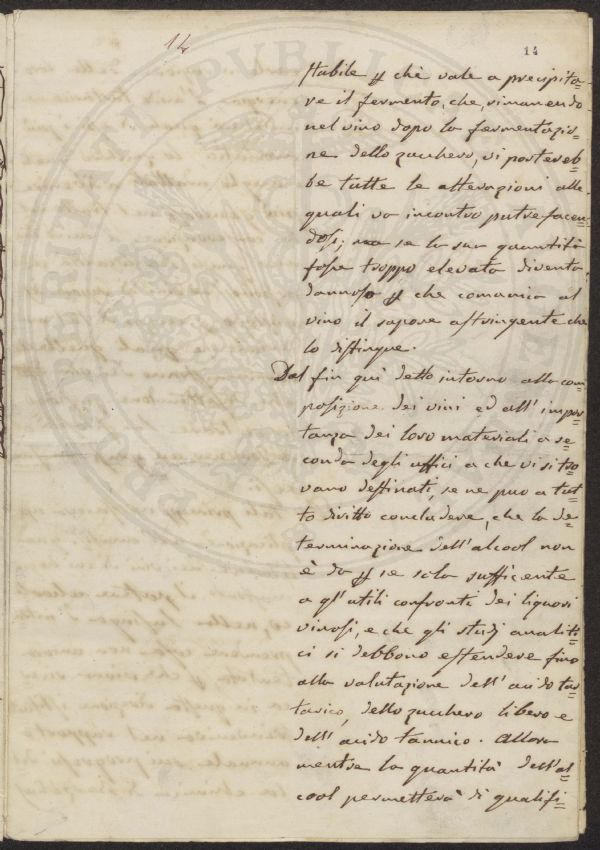 14
14
stabile p chè vale a precipita=
re il fermento, che, rimanendo
nel vino dopo la fermentazio=
ne dello zucchero, vi portereb=
be tutte le alterazioni alle
quali va incontro putrefacen=
dosi; ma se la sua quantità
fosse troppo elevata diventa
dannoso p che comunica al
vino il sapore astringente che
lo distingue.
Dal fin quì detto intorno alla com=
posizione dei vini ed all' impor=
tanza dei loro materiali a se=
conda degli uffici a che vi si tro=
vano destinati, se ne puo a tut=
to diritto concludere, che la de=
terminazione dell'alcool non
è da p se sola sufficente
a gl' utili confronti dei liquori
vinosi, e che gli studj analiti=
ci si debbono estendere fino
alla valutazione dell' acido tar=
tarico, dello zucchero libero e
dell' acido tannico. Allora
mentre la quantità dell'al=
cool permetterà di qualifi=